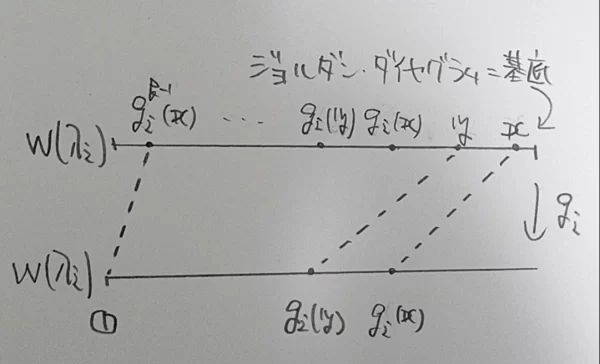 ジョルダン・ダイヤグラム=基底
g_i^{k-1}(x) ... g_i(y) g_i(x) y x
W(λ_i)
g_i
W(λ_i)
0 g_i(y) g_i(x)